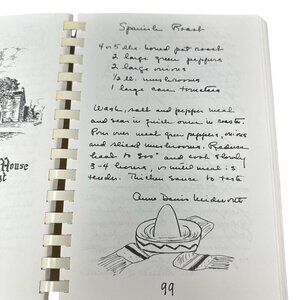 House
st
Spanish Roast
4 or 5 lbs. boned pot roast
2 large green peppers
2 large onions
1/2 lb. mushrooms
1 large can tomatoes
Wash, salt and pepper meat
and sear in quick oven in roaster.
Pour over meat green peppers, onions
and sliced mushrooms. Reduce
heat to 300° and cook slowly
3-4 hours, or until meat is
tender. Thicken sauce to taste.
Anne Davis
99